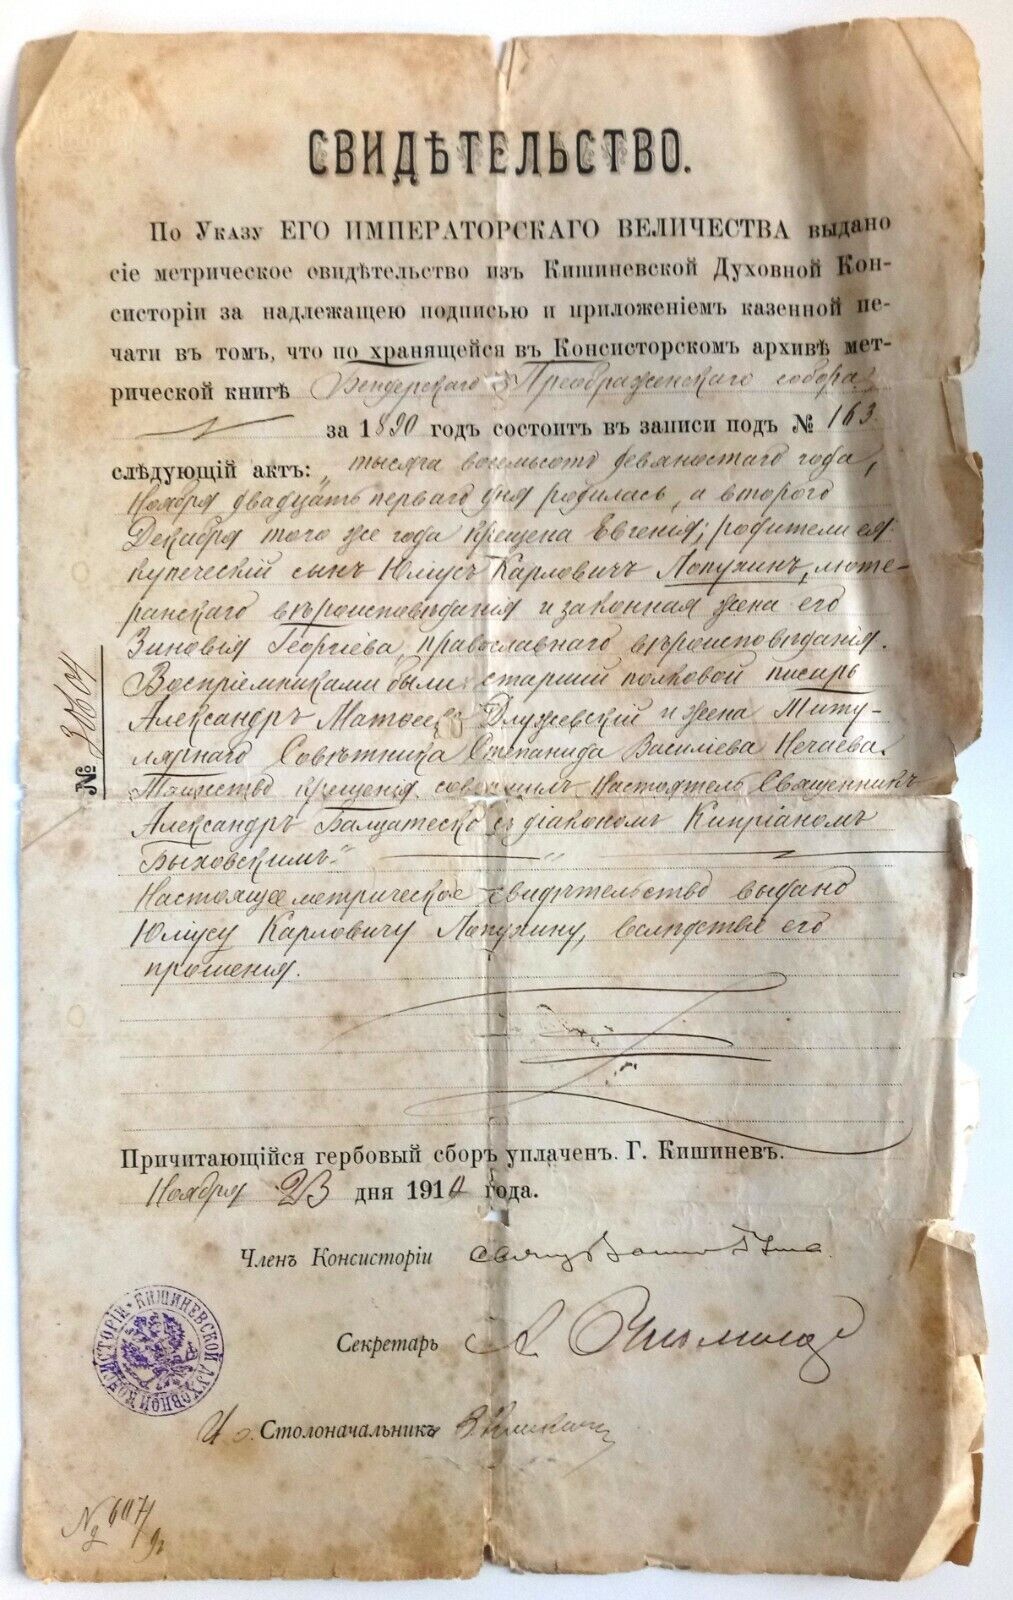 СВИДѢТЕЛЬСТВО.
По Указу ЕГО ИМПЕРАТОРСКАГО ВЕЛИЧЕСТВА выдано
сіе метрическое свидѣтельство изъ Кишиневской Духовной Кон-
систоріи за надлежащею подписью и приложеніемъ казенной пе-
чати въ томъ, что по хранящейся въ Консисторскомъ архивѣ мет-
рической книгѣ Бендерскаго Преображенскаго собора
за 1890 годъ состоитъ въ записи подъ № 163.
слѣдующій актъ: „тысяча восемьсотъ девяностаго года,
Ноября двадцать перваго дня родилась, а втораго
Декабря того же года крещена Евгенія; родители ея:
купеческій сынъ Юліусъ Карловичъ Лопухинъ, люте-
ранскаго вѣроисповѣданія и законная жена его
Зиновія Георгіева, православнаго вѣроисповѣданія.
Воспріемниками были: старшій полковой писарь
Александръ Длужевскій и жена Титу-
лярнаго Совѣтника Степанида Василіева Нечаева.
Таинство крещенія совершилъ Настоятель Священникъ
Александръ Балцатеско съ діакономъ Кипріаномъ
Быховскимъ."
Настоящее метрическое свидѣтельство выдано
Юліусу Карловичу Лопухину, вслѣдствіе его
прошенія.
№ 30604
Причитающійся гербовый сборъ уплаченъ. Г. Кишиневъ.
Ноября 23 дня 1910 года.
Членъ Консисторіи свящ
Секретарь А.
КИШИНЕВСКОЙ ДУХОВНОЙ КОНСИСТОРІИ
И. о. Столоначальника